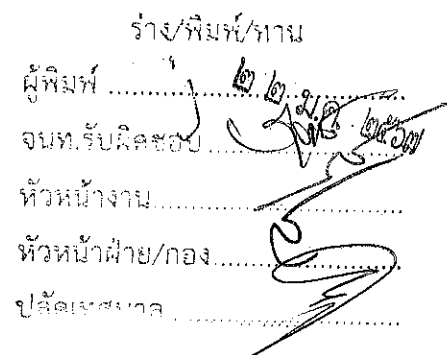 ร่าง/พิมพ์/ทาน
ผู้พิมพ์
๒๒ มี.ค. ๒๕๖๗
จนท.รับผิดชอบ
หัวหน้างาน
หัวหน้าฝ่าย/กอง
ปลัดเทศบาล